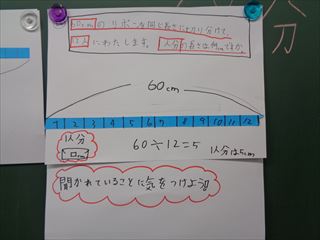 60cmのリボンを同じ長さに切り分けて、
12人にわたします。1人分の長さは何cmですか。
60cm
1 2 3 4 5 6 7 8 9 10 11 12
1人分
□cm
60÷12=5
1人分は5cm
聞かれていることに気をつけよう!
分